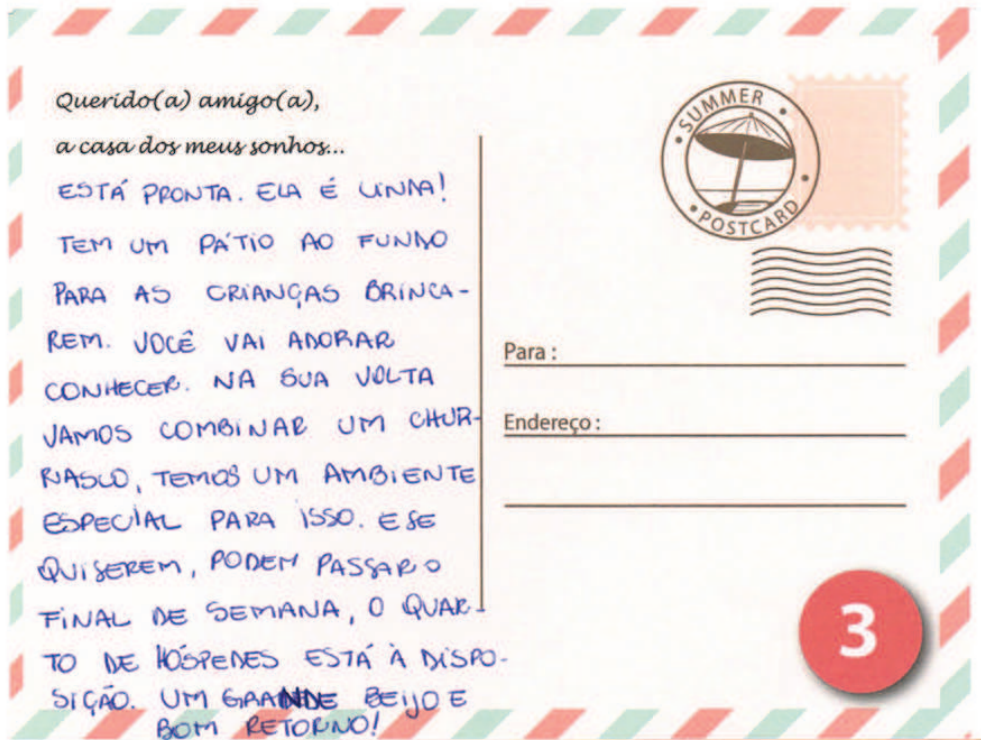 Querido(a) amigo(a),
a casa dos meus sonhos...
ESTÁ PRONTA. ELA É LINDA!
TEM UM PÁTIO AO FUNDO
PARA AS CRIANÇAS BRINCA-
REM. VOCÊ VAI ADORAR
CONHECER. NA SUA VOLTA
VAMOS COMBINAR UM CHUR-
RASCO, TEMOS UM AMBIENTE
ESPECIAL PARA ISSO. E SE
QUISEREM, PODEM PASSAR O
FINAL DE SEMANA, O QUAR-
TO DE HÓSPEDES ESTÁ À DISPO-
SIÇÃO. UM GRANDE BEIJO E
BOM RETORNO!
SUMMER
POSTCARD
Para :
Endereço :
3